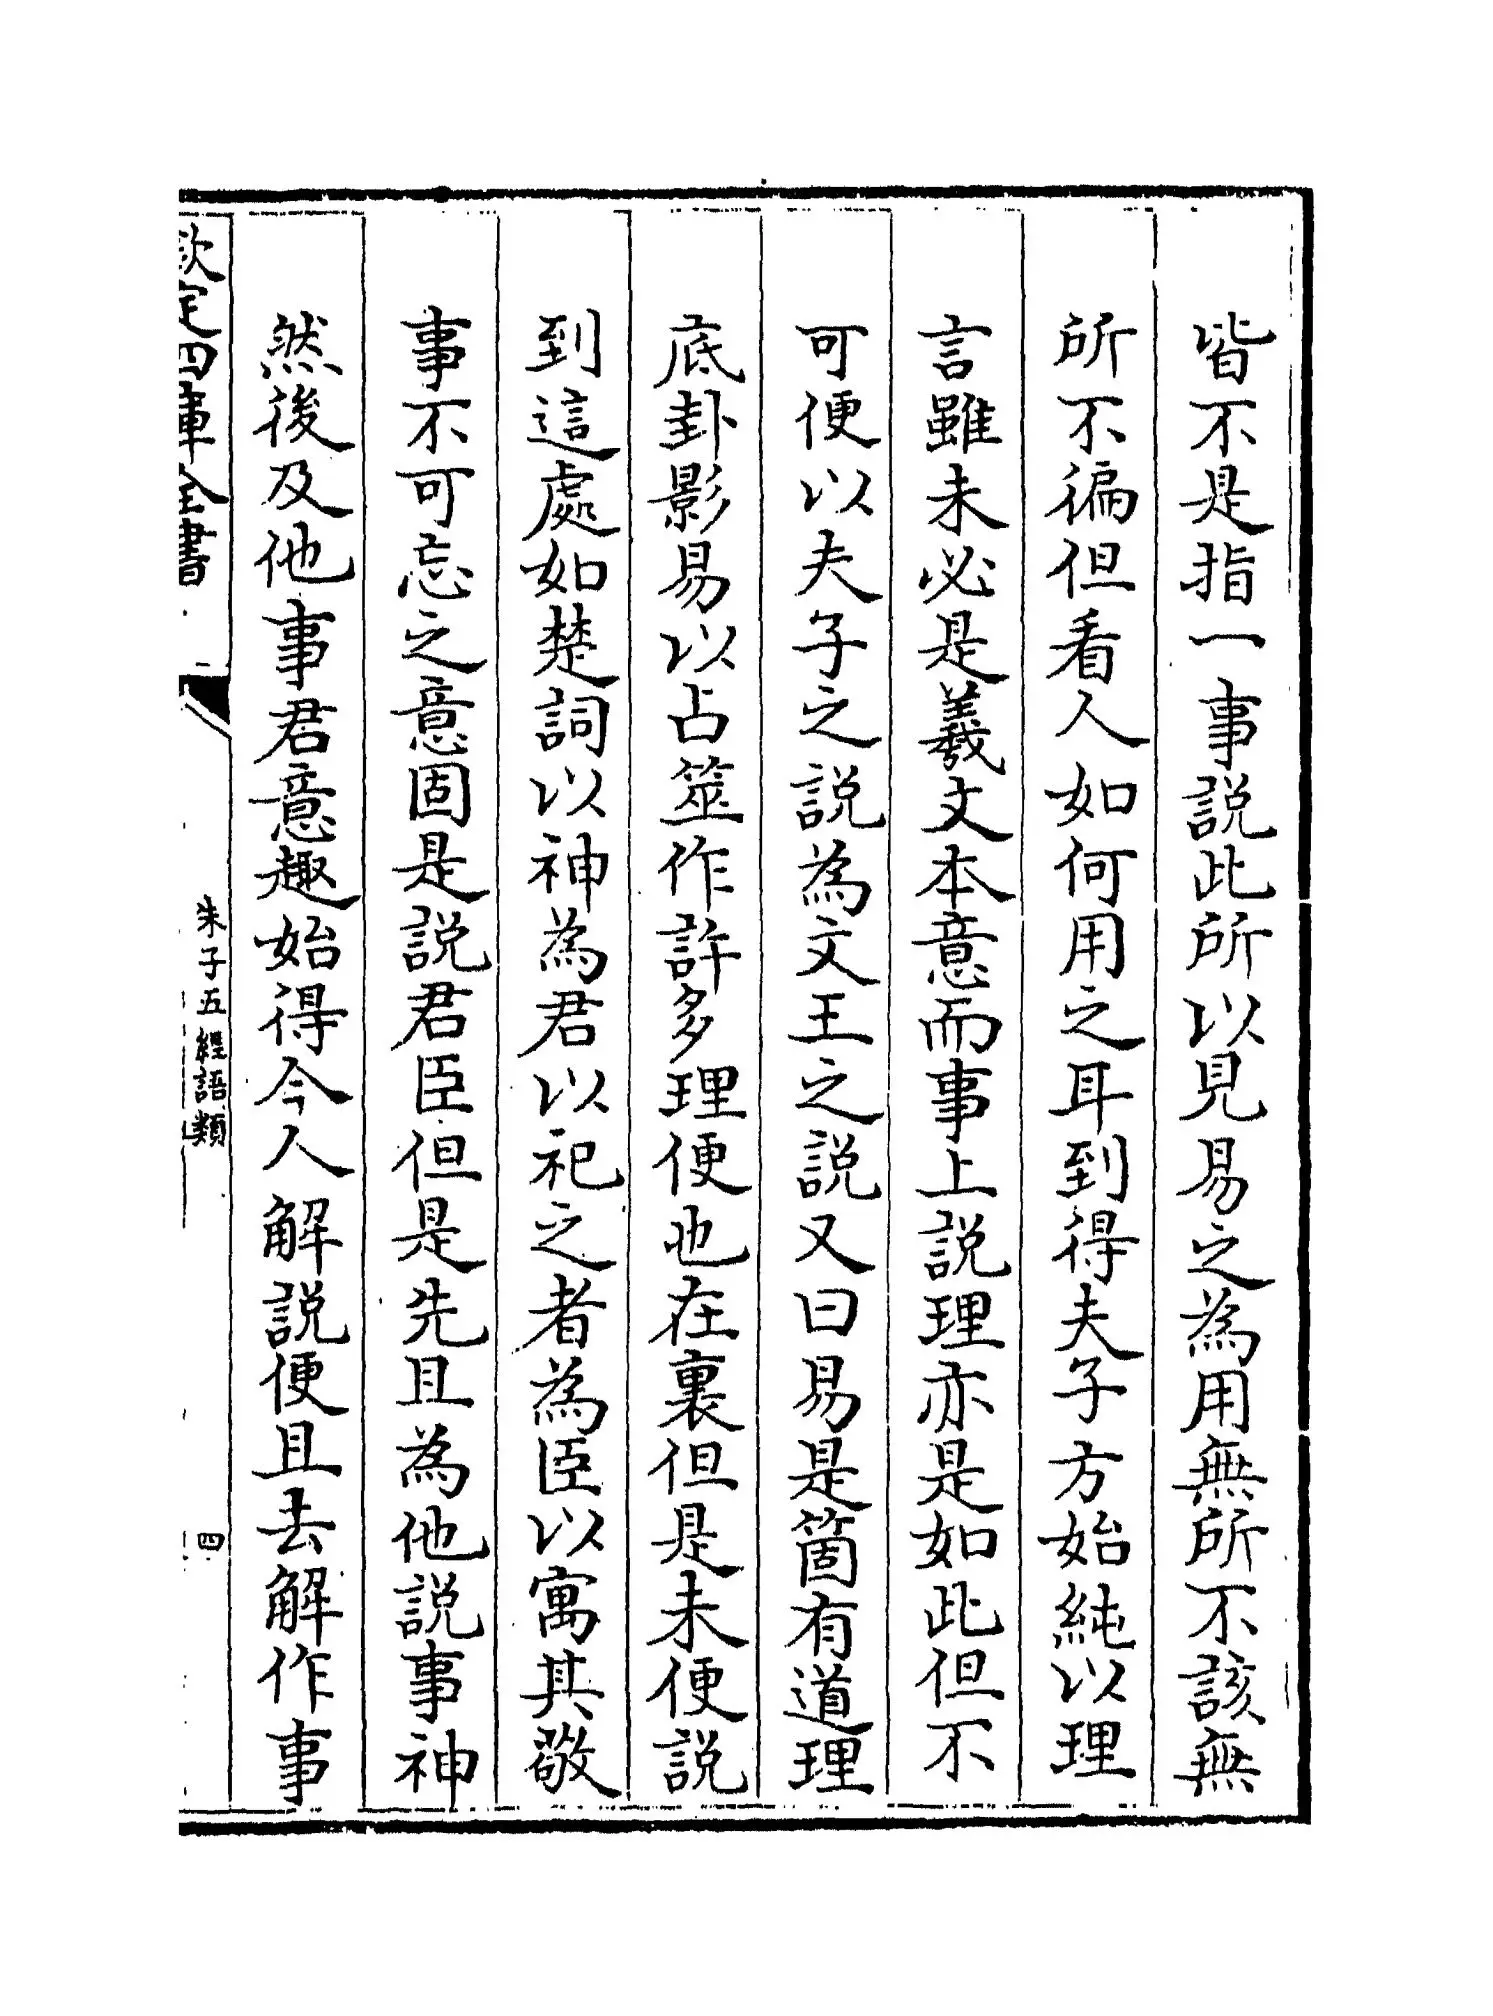 皆不是指一事說此所以見易之為用無所不該無
所不徧但看人如何用之耳到得夫子方始純以理
言雖未必是羲文本意而事上說理亦是如此但不
可便以夫子之說為文王之說又曰易是箇有道理
底卦影易以占筮作許多理便也在裏但是未便說
到這處如楚詞以神為君以祀之者為臣以寓其敬
事不可忘之意固是說君臣但是先且為他說事神
然後及他事君意趣始得今人解說便且去解作事
欽定四庫全書
朱子五經語類
四